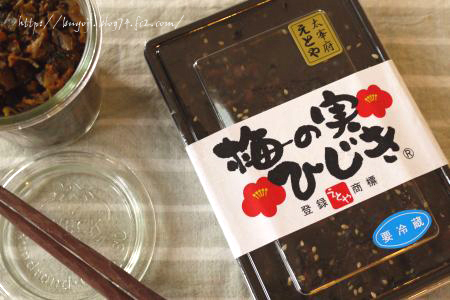 https://kuyori.blog74.fc2.com/
太宰府
えとや
梅の実
ひじき
®
登録
えとや
商標
要冷蔵